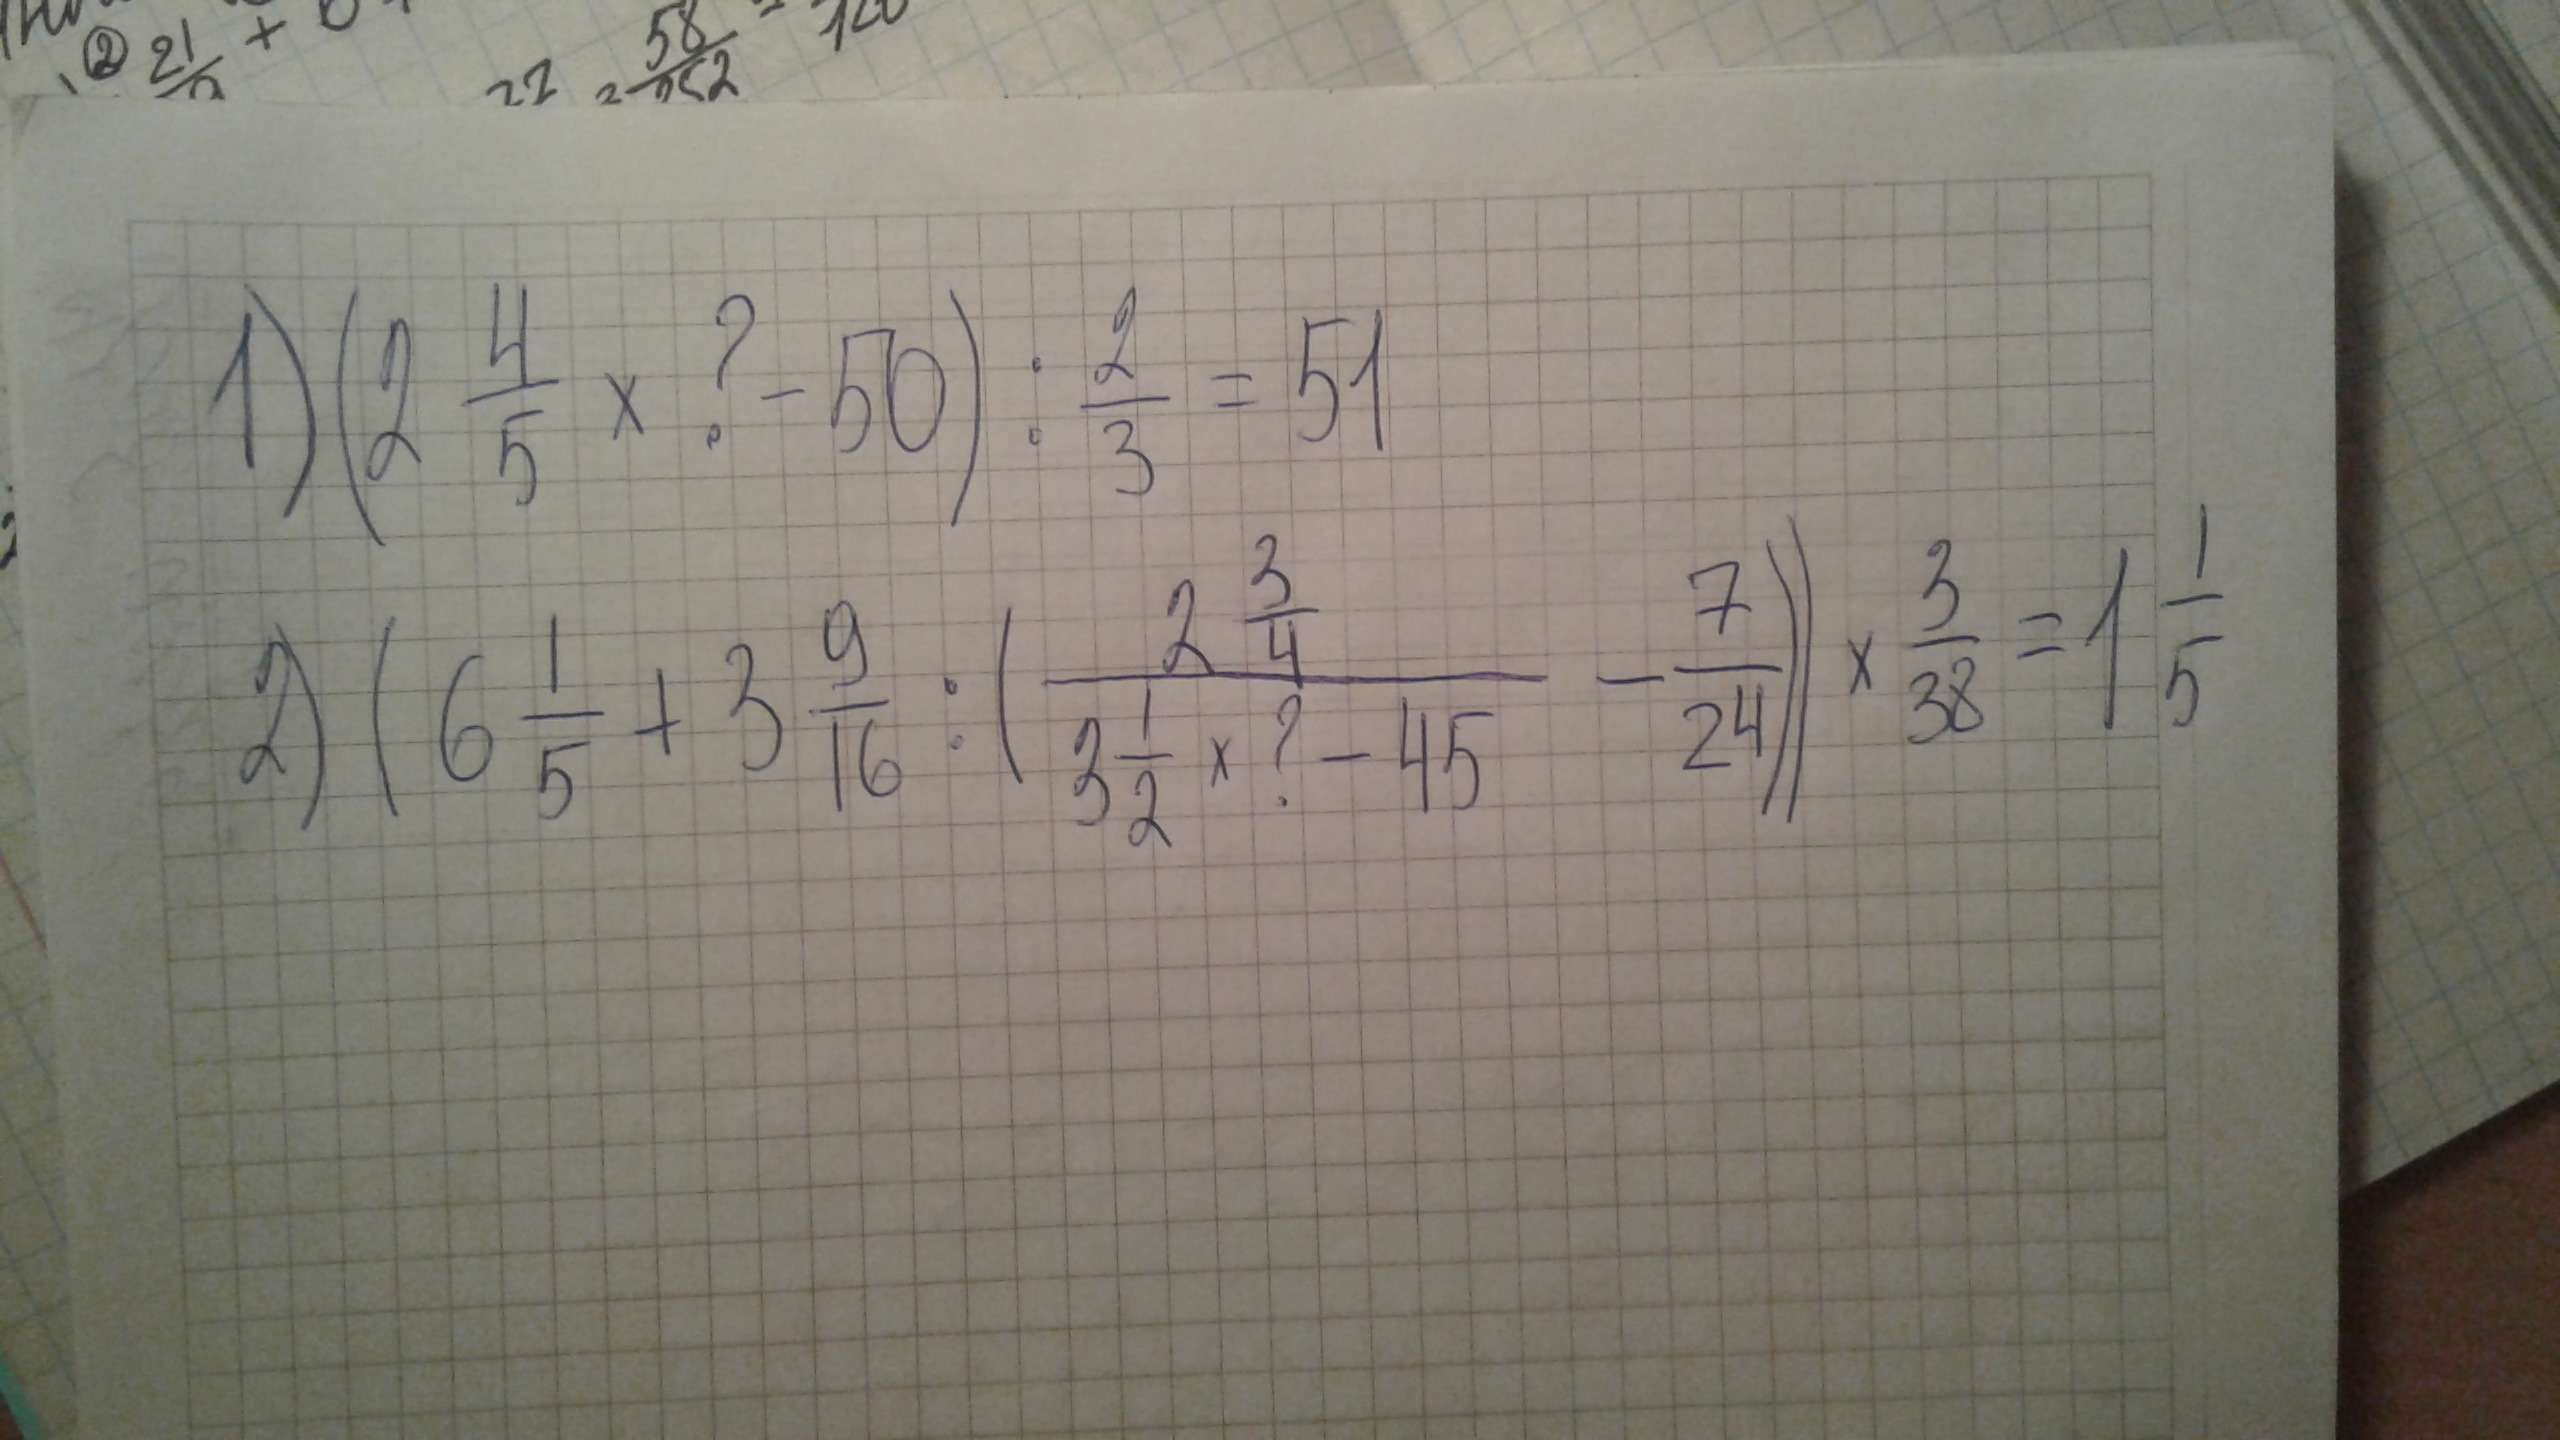 ② 21 +
58
1) (2 4/5 × ? - 50) : 2/3 = 51
2) (6 1/5 + 3 9/16 : (2 3/4 / 3 1/2 × ? - 45 - 7/24)) × 3/38 = 1 1/5